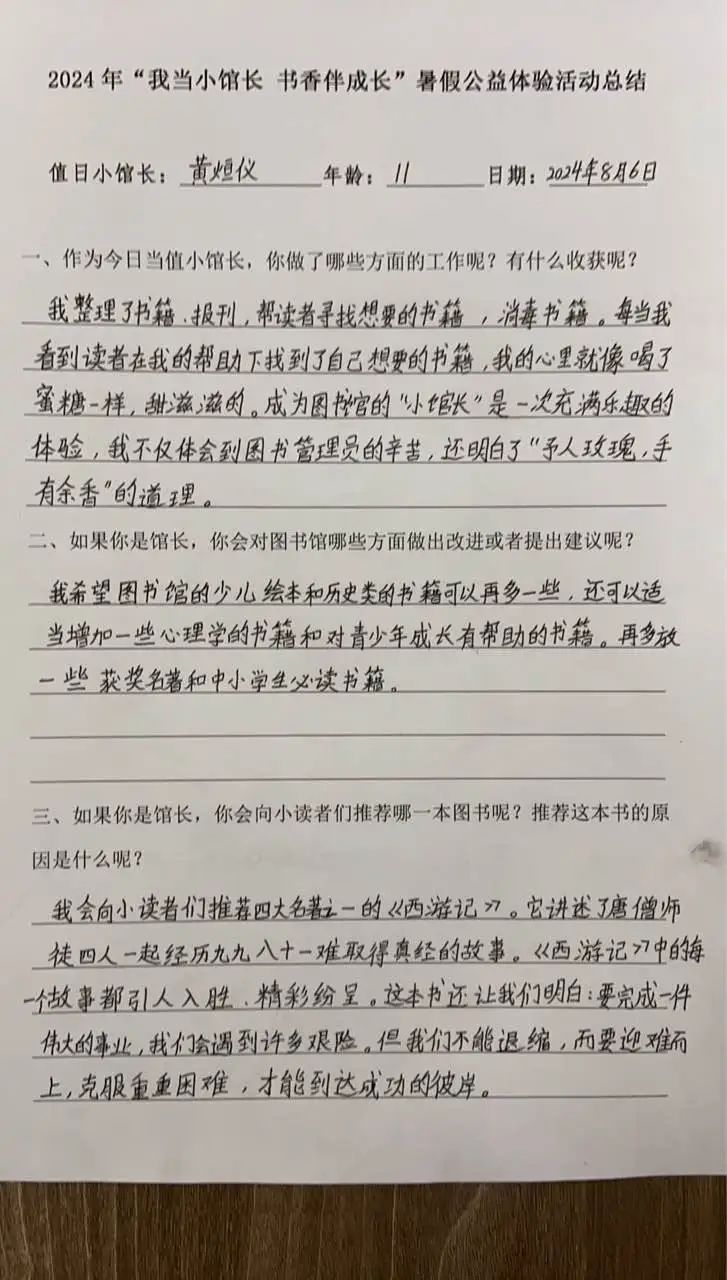 2024年“我当小馆长 书香伴成长”暑假公益体验活动总结
值日小馆长：黄烜仪 年龄：11 日期：2024年8月6日
一、作为今日当值小馆长，你做了哪些方面的工作呢？有什么收获呢？
我整理了书籍、报刊，帮读者寻找想要的书籍，消毒书籍。每当我
看到读者在我的帮助下找到了自己想要的书籍，我的心里就像喝了
蜜糖一样，甜滋滋的。成为图书馆的“小馆长”是一次充满乐趣的
体验，我不仅体会到图书管理员的辛苦，还明白了“予人玫瑰，手
有余香”的道理。
二、如果你是馆长，你会对图书馆哪些方面做出改进或者提出建议呢？
我希望图书馆的少儿绘本和历史类的书籍可以再多一些，还可以适
当增加一些心理学的书籍和对青少年成长有帮助的书籍。再多放
一些获奖名著和中小学生必读书籍。
三、如果你是馆长，你会向小读者们推荐哪一本图书呢？推荐这本书的原
因是什么呢？
我会向小读者们推荐四大名著之一的《西游记》。它讲述了唐僧师
徒四人一起经历九九八十一难取得真经的故事。《西游记》中的每
一个故事都引人入胜、精彩纷呈。这本书还让我们明白：要完成一件
伟大的事业，我们会遇到许多艰险。但我们不能退缩，而要迎难而
上，克服重重困难，才能到达成功的彼岸。